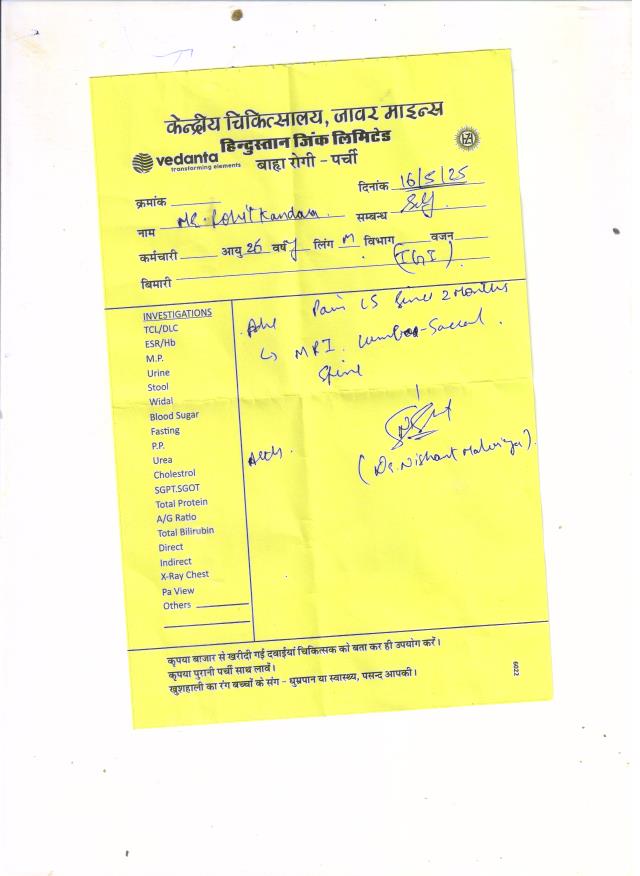 केन्द्रीय चिकित्सालय, जावर माइन्स
हिन्दुस्तान जिंक लिमिटेड
vedanta
transforming elements
बाह्य रोगी – पर्ची
क्रमांक
दिनांक 16/5/25
नाम Mr. Rohit सम्बन्ध Self
कर्मचारी आयु 26 वर्ष लिंग M विभाग वजन
बिमारी
INVESTIGATIONS
TCL/DLC
ESR/Hb
M.P.
Urine
Stool
Widal
Blood Sugar
Fasting
P.P.
Urea
Cholestrol
SGPT.SGOT
Total Protein
A/G Ratio
Total Bilirubin
Direct
Indirect
X-Ray Chest
Pa View
Others
Pain LS Since 2 Months
MRI. Lumbo-Sacral
Spine
(Dr. Nishant Malviya).
कृपया बाजार से खरीदी गई दवाईयां चिकित्सक को बता कर ही उपयोग करें।
कृपया पुरानी पर्ची साथ लावें।
खुशहाली का रंग बच्चों के संग – धुम्रपान या स्वास्थ्य, पसन्द आपकी।
6022